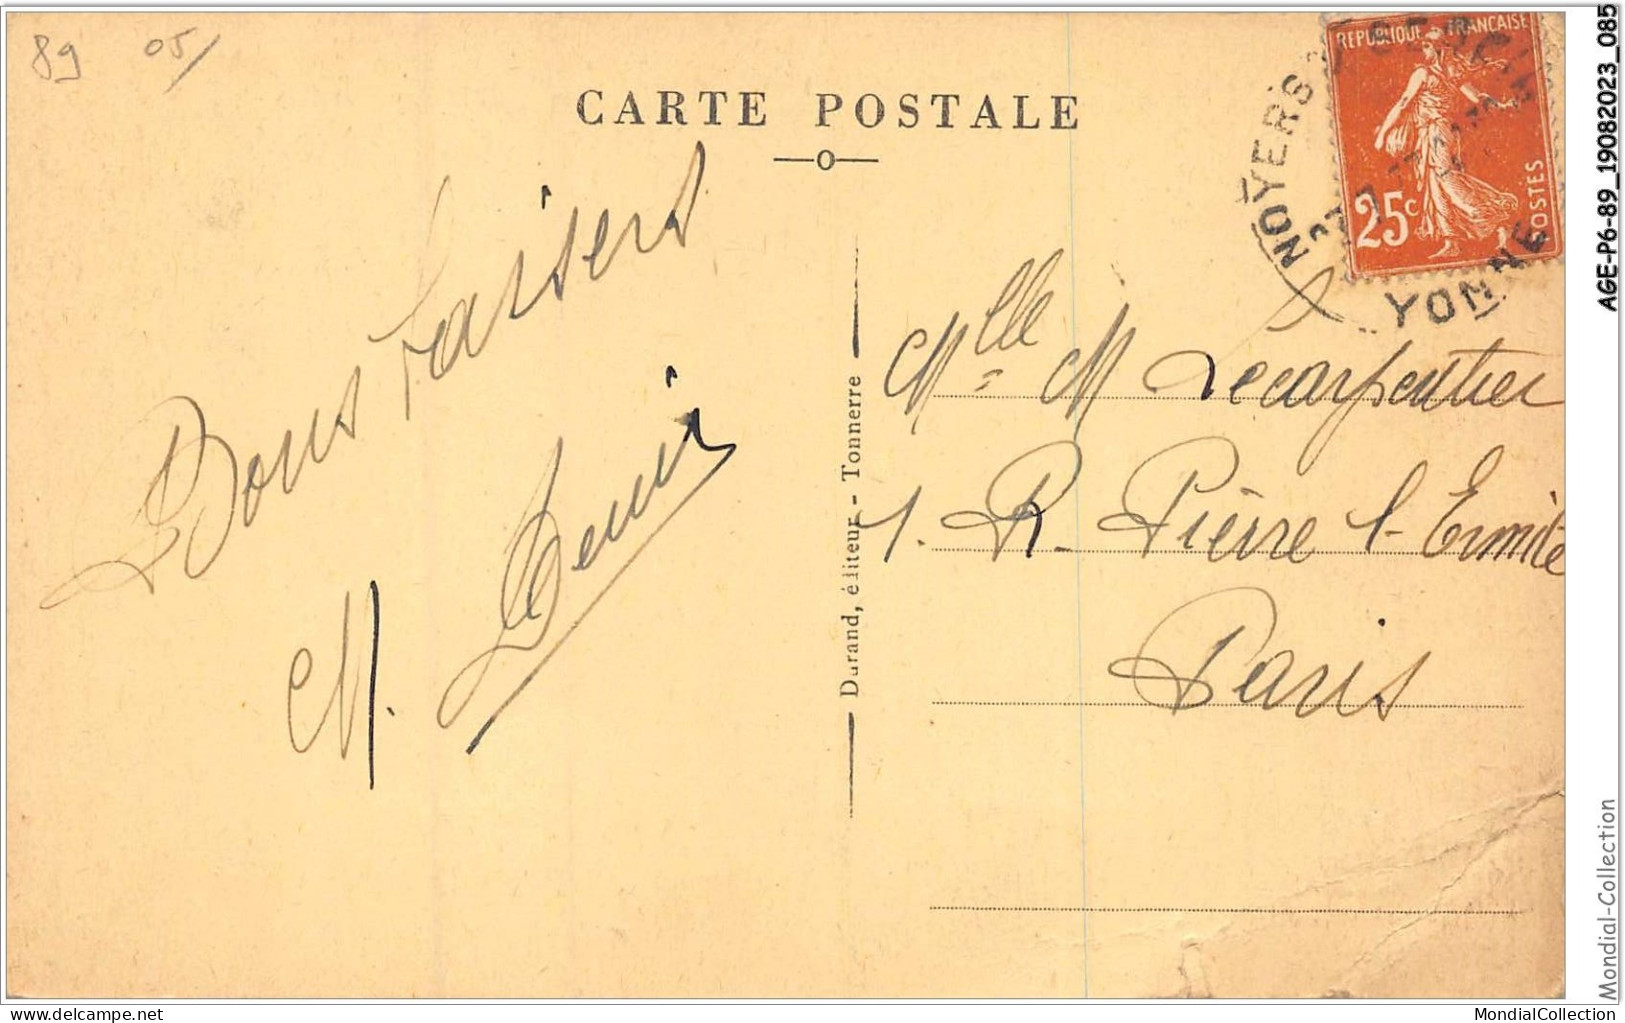 89 05/
CARTE POSTALE
REPUBLIQUE FRANCAISE
25c
POSTES
NOYERS
YONNE
Bons baisers
M. Denis
Durand, éditeur - Tonnerre
Mlle M Lecarpentier
1. R. Pierre l-Ermite
Paris
AGE-P6-89_19082023_085
Mondial-Collection
www.delcampe.net
MondialCollection